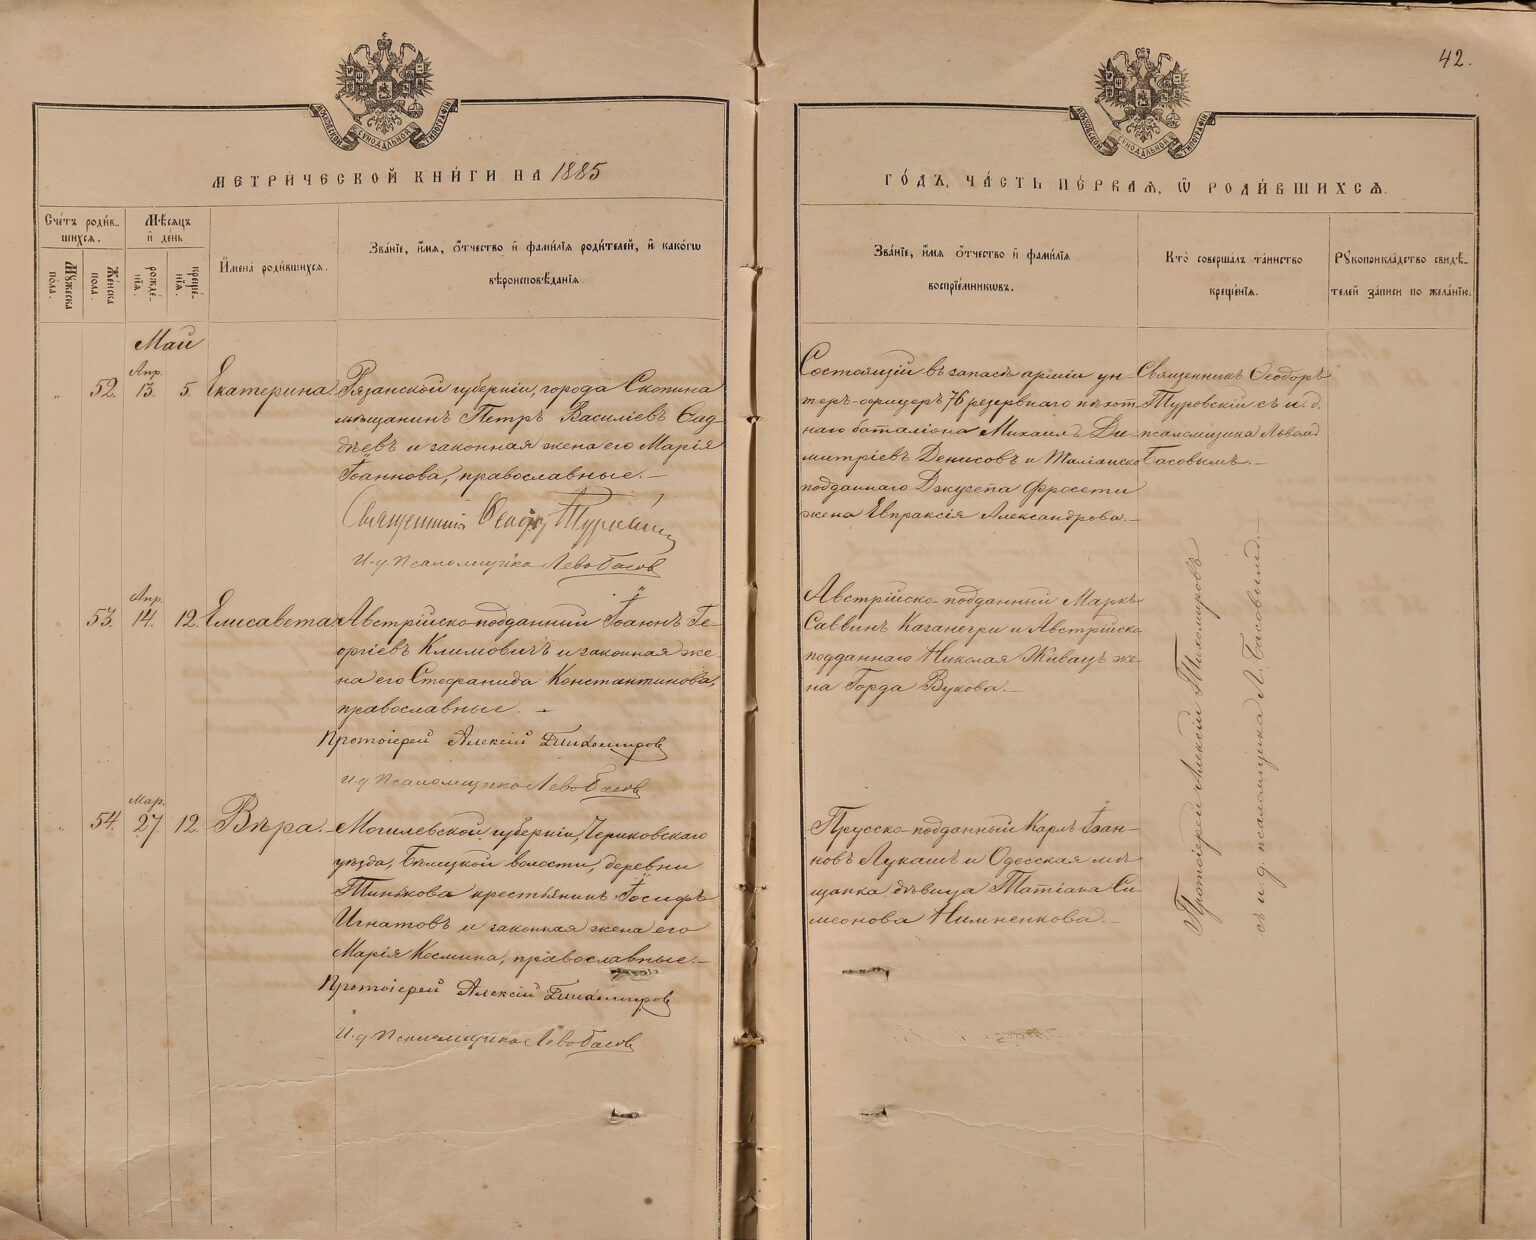 42.
МОСКОВСКОЙ СѴНОДАЛЬНОЙ ТИПОГРАФІИ
МОСКОВСКОЙ СѴНОДАЛЬНОЙ ТИПОГРАФІИ
МЕТРИ́ЧЕСКОЙ КНИ́ГИ НА 1885
ГО́ДЪ, ЧА́СТЬ ПЕ́РВАЯ, Ѿ РОДИ́ВШИХСЯ.
Сче́тъ роди́в-
шихся.
Му́жеска
по́ла.
Же́нска
пола.
Мѣ́сяцъ
и де́нь
рожде́-
нія.
креще́-
нія.
Имена роди́вшихся.
Зва́ніе, и́мя, о́тчество и фами́лія роди́телей, и како́гѡ
вѣроисповѣ́данія.
Зва́ніе, и́мя о́тчество и фами́лія
воспріе́мниковъ.
Кто̀ соверша́лъ та́инство
креще́нія.
Рукоприкла́дство свидѣ́-
телей за́писи по жела́нію.
Май
„ 52. Апр. 13. 5. Екатерина.
Рязанской губерніи, города Скопина
мѣщанинъ Петръ Василіевъ Фад-
дѣевъ и законная жена его Марія
Іоаннова, православные. —
Священникъ Ѳеодоръ Туровскій
И. д. Псаломщика Левъ Басовъ
Состоящій въ запасѣ арміи ун-
теръ-офицеръ 76 резервнаго пѣхот
наго баталіона Михаилъ Ди-
митріевъ Денисовъ и Италіанско
подданнаго Джузепа Фросети
жена Евпраксія Александрова. —
Священникъ Ѳеодоръ
Туровскій съ и. д.
псаломщика Львомъ
Басовымъ. —
„ 53. Апр. 14. 12. Елисавета
Австрійско-подданный Іоаннъ Ге-
оргіевъ Климовичъ и законная же-
на его Стефанида Константинова,
православные. —
Протоіерей Алексій Тихомировъ
И. д. Псаломщика Левъ Басовъ
Австрійско-подданный Маркъ
Саввинъ Казанегри и Австрійско
подданнаго Николая Живацъ же-
на Горда Вукова. —
Протоіерей Алексій Тихомировъ
съ и. д. псаломщика Л. Басовымъ. —
„ 54. Мар. 27. 12. Вѣра. —
Могилевской губерніи, Чериковскаго
уѣзда, Бѣлицкой волости, деревни
Тинькова крестьянинъ Іосифъ
Игнатовъ и законная жена его
Марія Космина, православные. —
Протоіерей Алексій Тихомировъ
И. д. Псаломщика Левъ Басовъ
Прусско-подданный Карлъ Іоан-
новъ Лукашъ и Одесская мѣ-
щанка дѣвица Татіана Си-
меонова Нимненкова. —